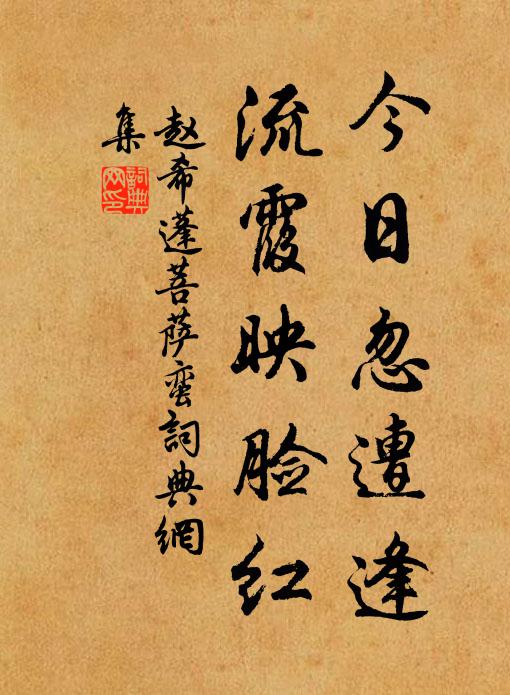 今日忽遭逢
流霞映脸红
赵希蓬菩萨蛮詞典網
集
詞典网印